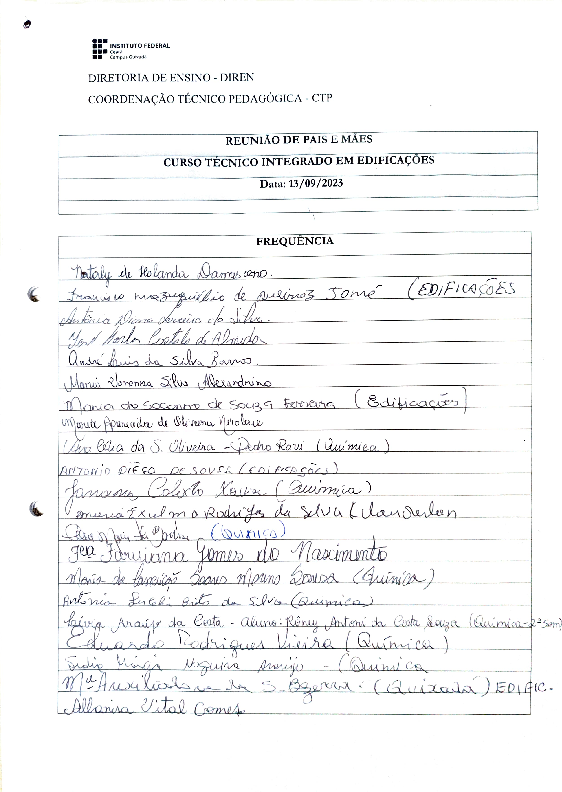 INSTITUTO FEDERAL
Ceará
Campus Quixadá
DIRETORIA DE ENSINO - DIREN
COORDENAÇÃO TÉCNICO PEDAGÓGICA - CTP
REUNIÃO DE PAIS E MÃES
CURSO TÉCNICO INTEGRADO EM EDIFICAÇÕES
Data: 13/09/2023
FREQUÊNCIA
de Holanda Damasceno.
Francisco de Tomé (EDIFICAÇÕES
Antônia da Silva.
José Castelo de Almeida
André Luis da Silva Barros
Silva Alexandrino
Maria do Socorro de Souza Ferreira (Edificações)
Maria Aparecida de Oliveira
Ana Célia da S. Oliveira - Pedro (Química)
ANTONIO DIEGO DE SOUZA (EDIFICAÇÕES)
(Química)
Rodrigues da Silva (Vanderlan
(Química)
Fca Gomes do Nascimento
Maria da Conceição Moreno Sousa (Química)
Antônia da Silva (Química)
Araújo da Costa - Aluno: Rôney Antoni da Costa Souza (Química - 2º Sem)
Eduardo Rodrigues Vieira (Química)
Nogueira Araújo - (Química
Mª Auxiliadora da S. Bezerra. (Quixadá) EDIFIC.
Vital Gomes